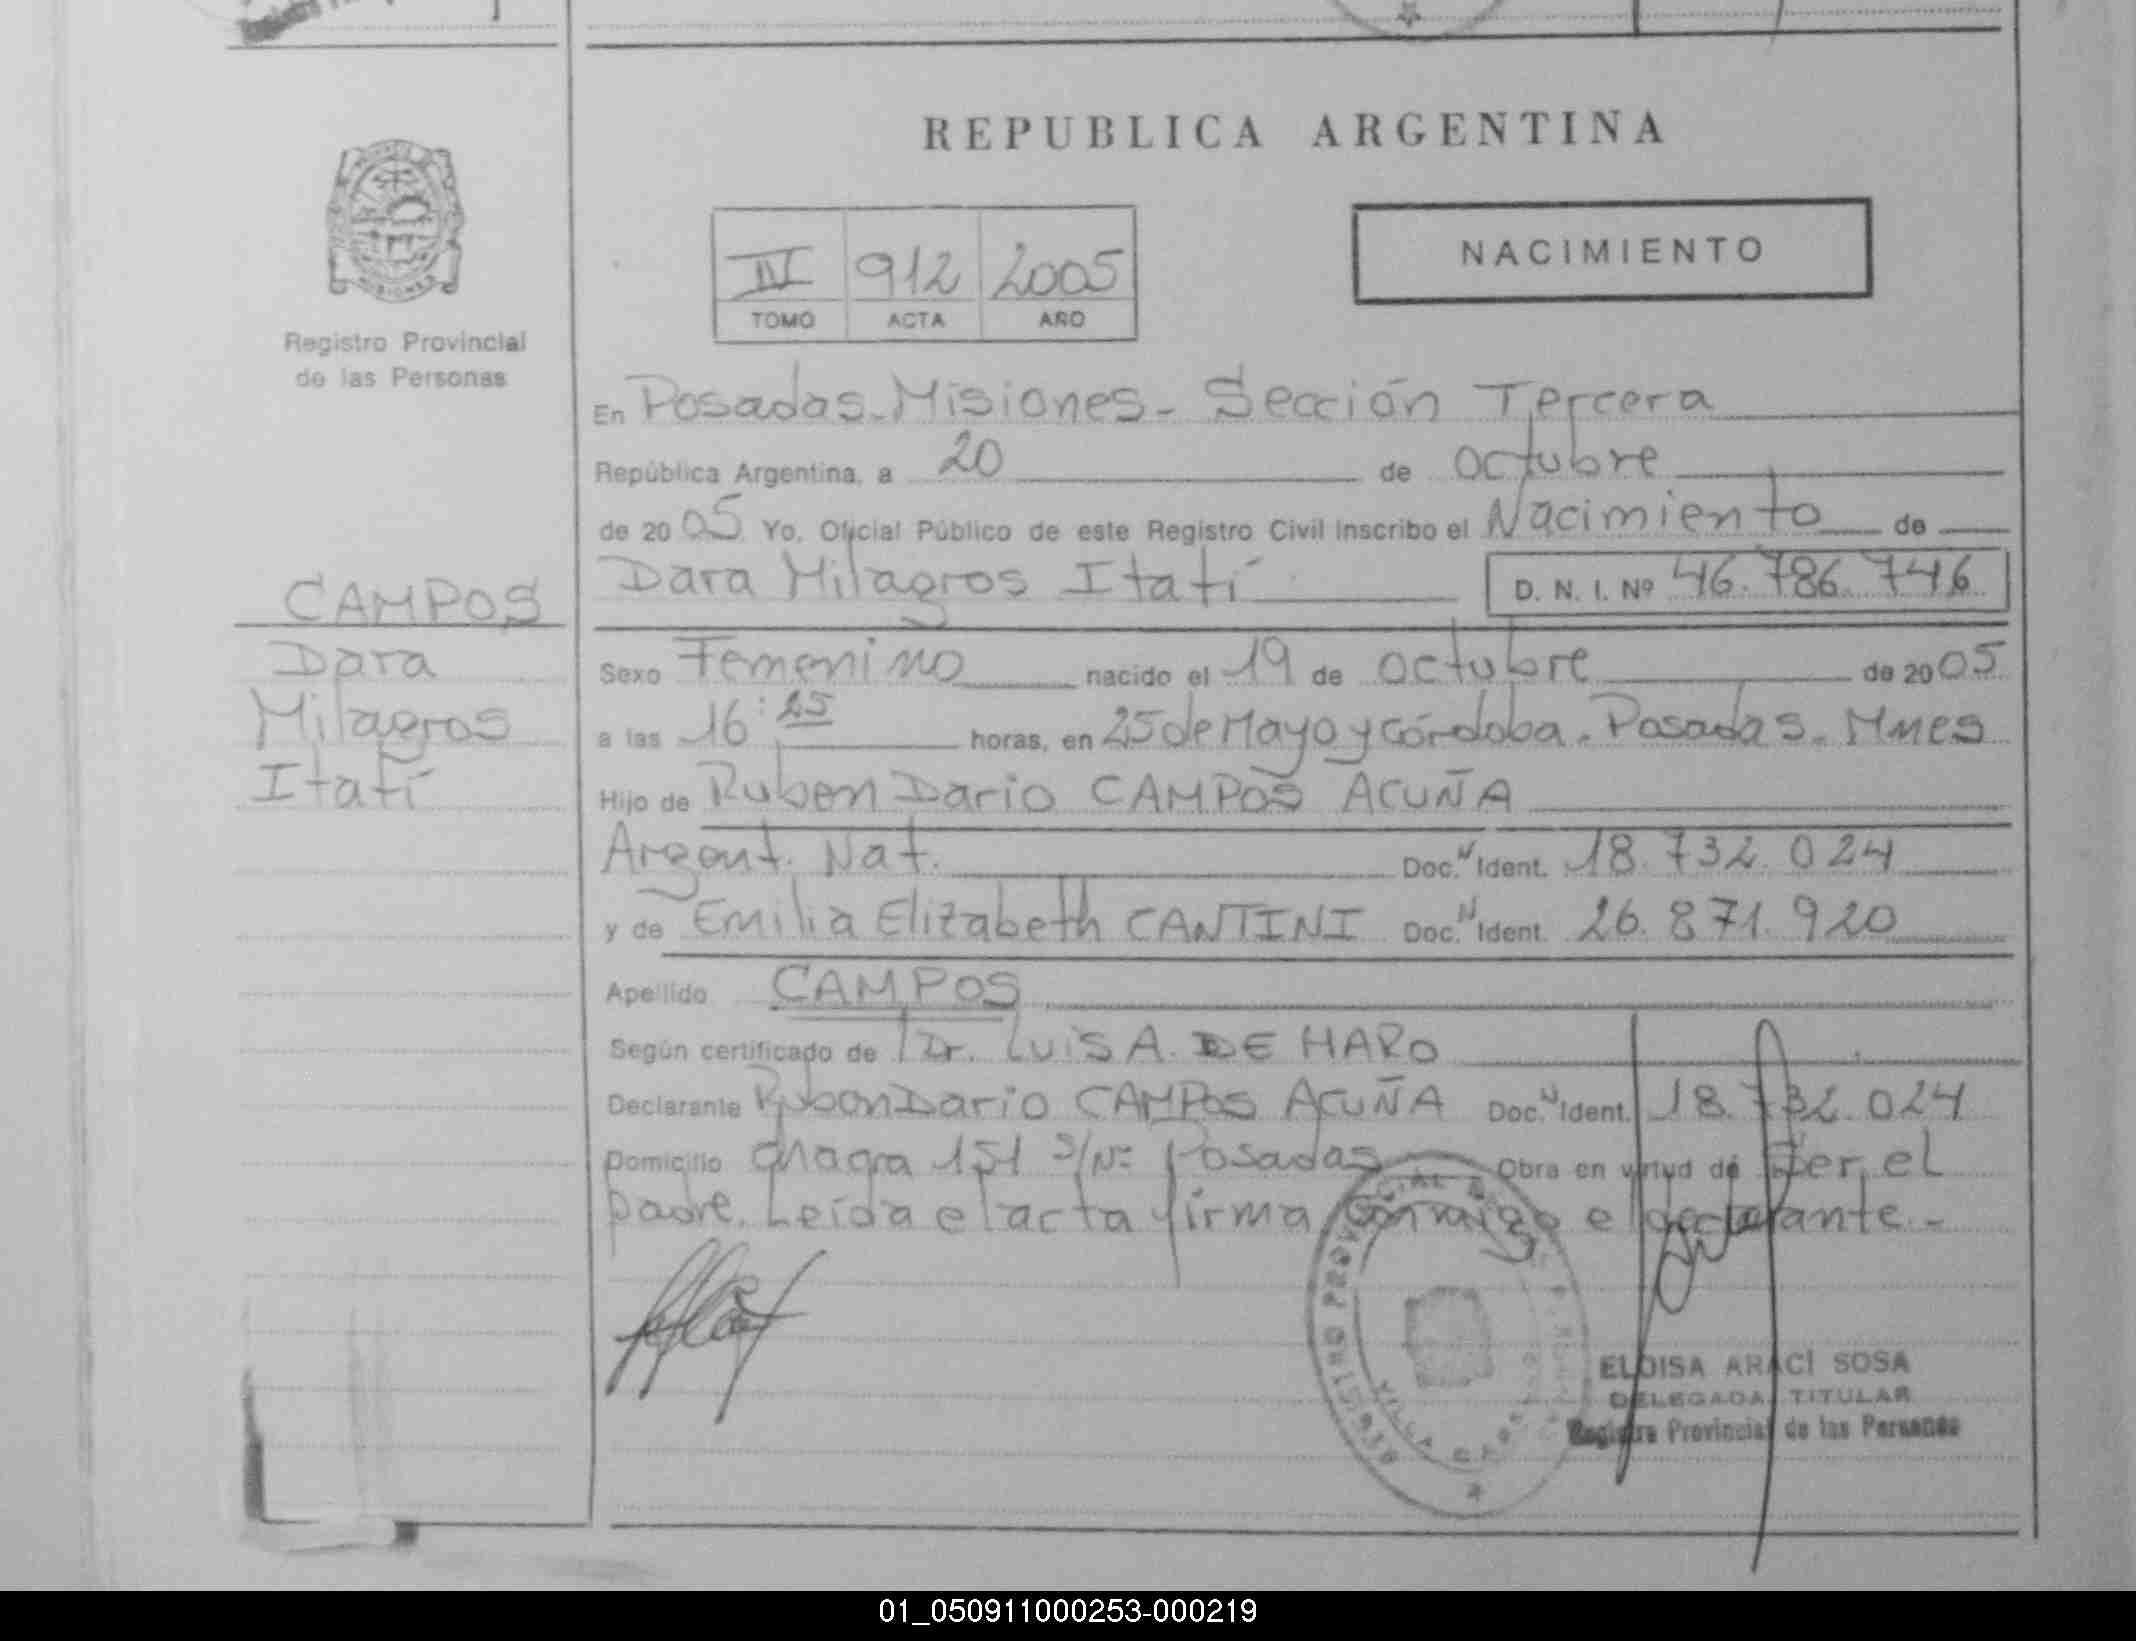 REPUBLICA ARGENTINA
NACIMIENTO
IV 912 2005
TOMO ACTA AÑO
Registro Provincial
de las Personas
En Posadas-Misiones- Sección Tercera
República Argentina, a 20 de octubre
de 2005 Yo, Oficial Público de este Registro Civil inscribo el Nacimiento de
Dara Milagros Itatí D. N. I. Nº 46.786.746
CAMPOS
Dara
Milagros
Itatí
Sexo Femenino nacido el 19 de octubre de 2005
a las 16:25 horas, en 25 de Mayo y Córdoba. Posadas. Mnes
Hijo de Ruben Dario CAMPOS ACUÑA
Argent. Nat. Doc. N Ident. 18.732.024
y de Emilia Elizabeth CANTINI Doc. N Ident. 26.871.920
Apellido CAMPOS
Según certificado de Dr. LUIS A. DE HARO
Declarante Ruben Dario CAMPOS ACUÑA Doc. N Ident. 18.732.024
Domicilio chagra 151 S/Nº Posadas Obra en virtud de Ser el
padre. Leída el acta firma conmigo el declarante.-
ELOISA ARACÍ SOSA
DELEGADA TITULAR
Registro Provincial de las Personas
01_050911000253-000219